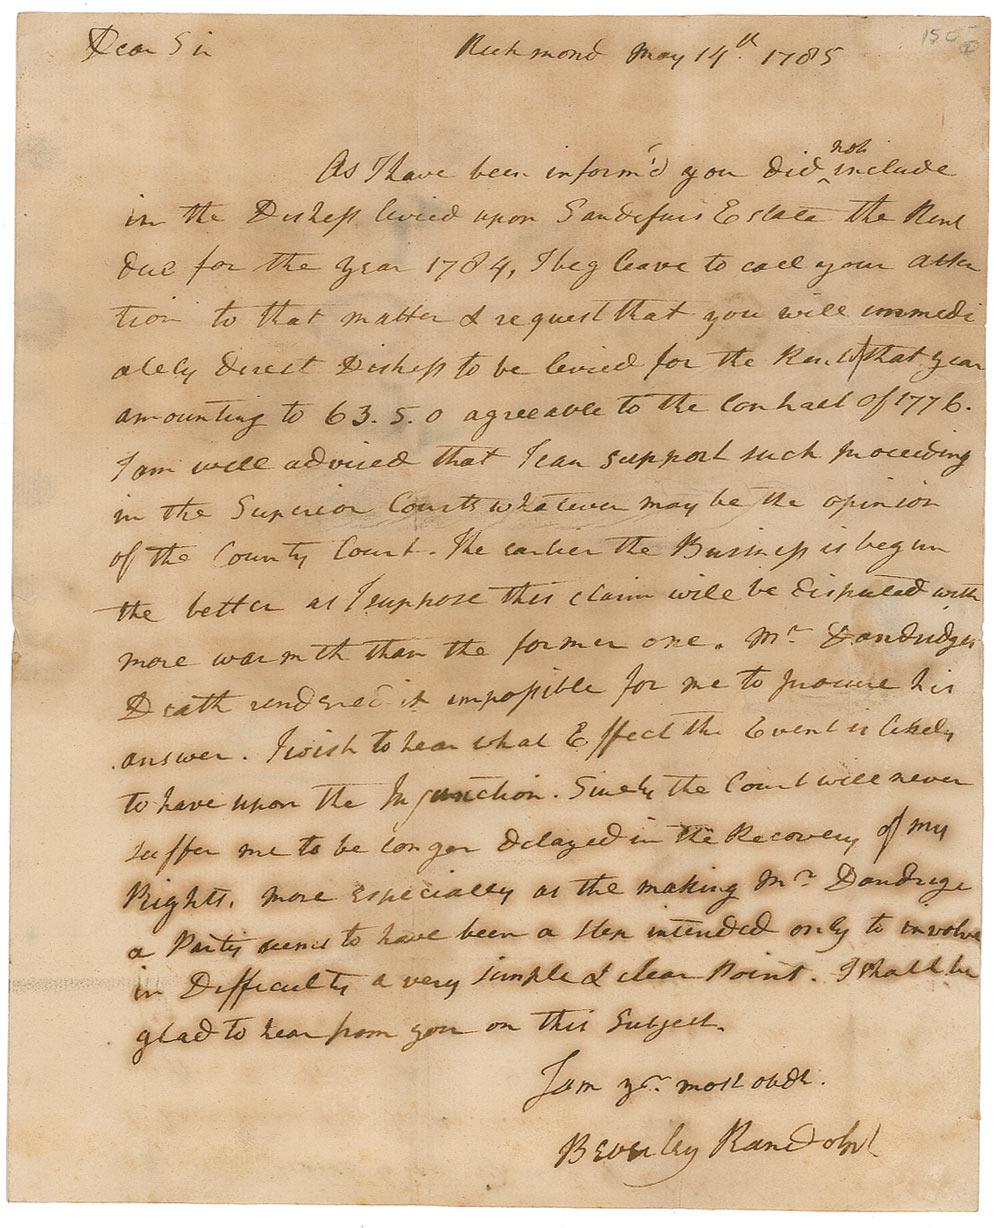 Dear Sir
Richmond May 14th. 1785
As I have been inform'd you did not include
in the Distress levied upon Sandefurs Estate the Rent
due for the year 1784, I beg leave to call your atten
tion to that matter & request that you will immedi
ately direct Distress to be levied for the Rent of that year
amounting to 63. 5. 0 agreeable to the Contract of 1776.
I am well advised that I can support such proceeding
in the Superior Courts whatever may be the opinion
of the County Court. The earlier the Business is begun
the better as I suppose this claim will be disputed with
more warmth than the former one. Mr. Dandridges
Death rendered it impossible for me to procure his
answer. I wish to hear what Effect the Event is likely
to have upon the Injunction. Surely the Court will never
suffer me to be longer delayed in the Recovery of my
Rights. more especially as the making Mr. Dandrige
a Party seems to have been a step intended only to involve
in Difficulty a very simple & clear Point. I shall be
glad to hear from you on this Subject.
I am yr. most obdt.
Beverley Randolph